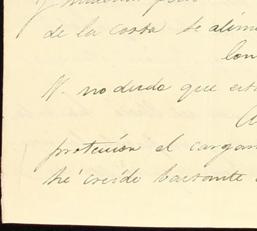 de la costa se alime
lon
V. no dudo que est
protección el cargam
hé creido bastante